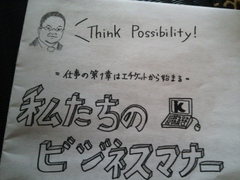 Think Possibility!
= 仕事の第1章はエチケットから始まる =
私たちの
K
ビジネスマナー